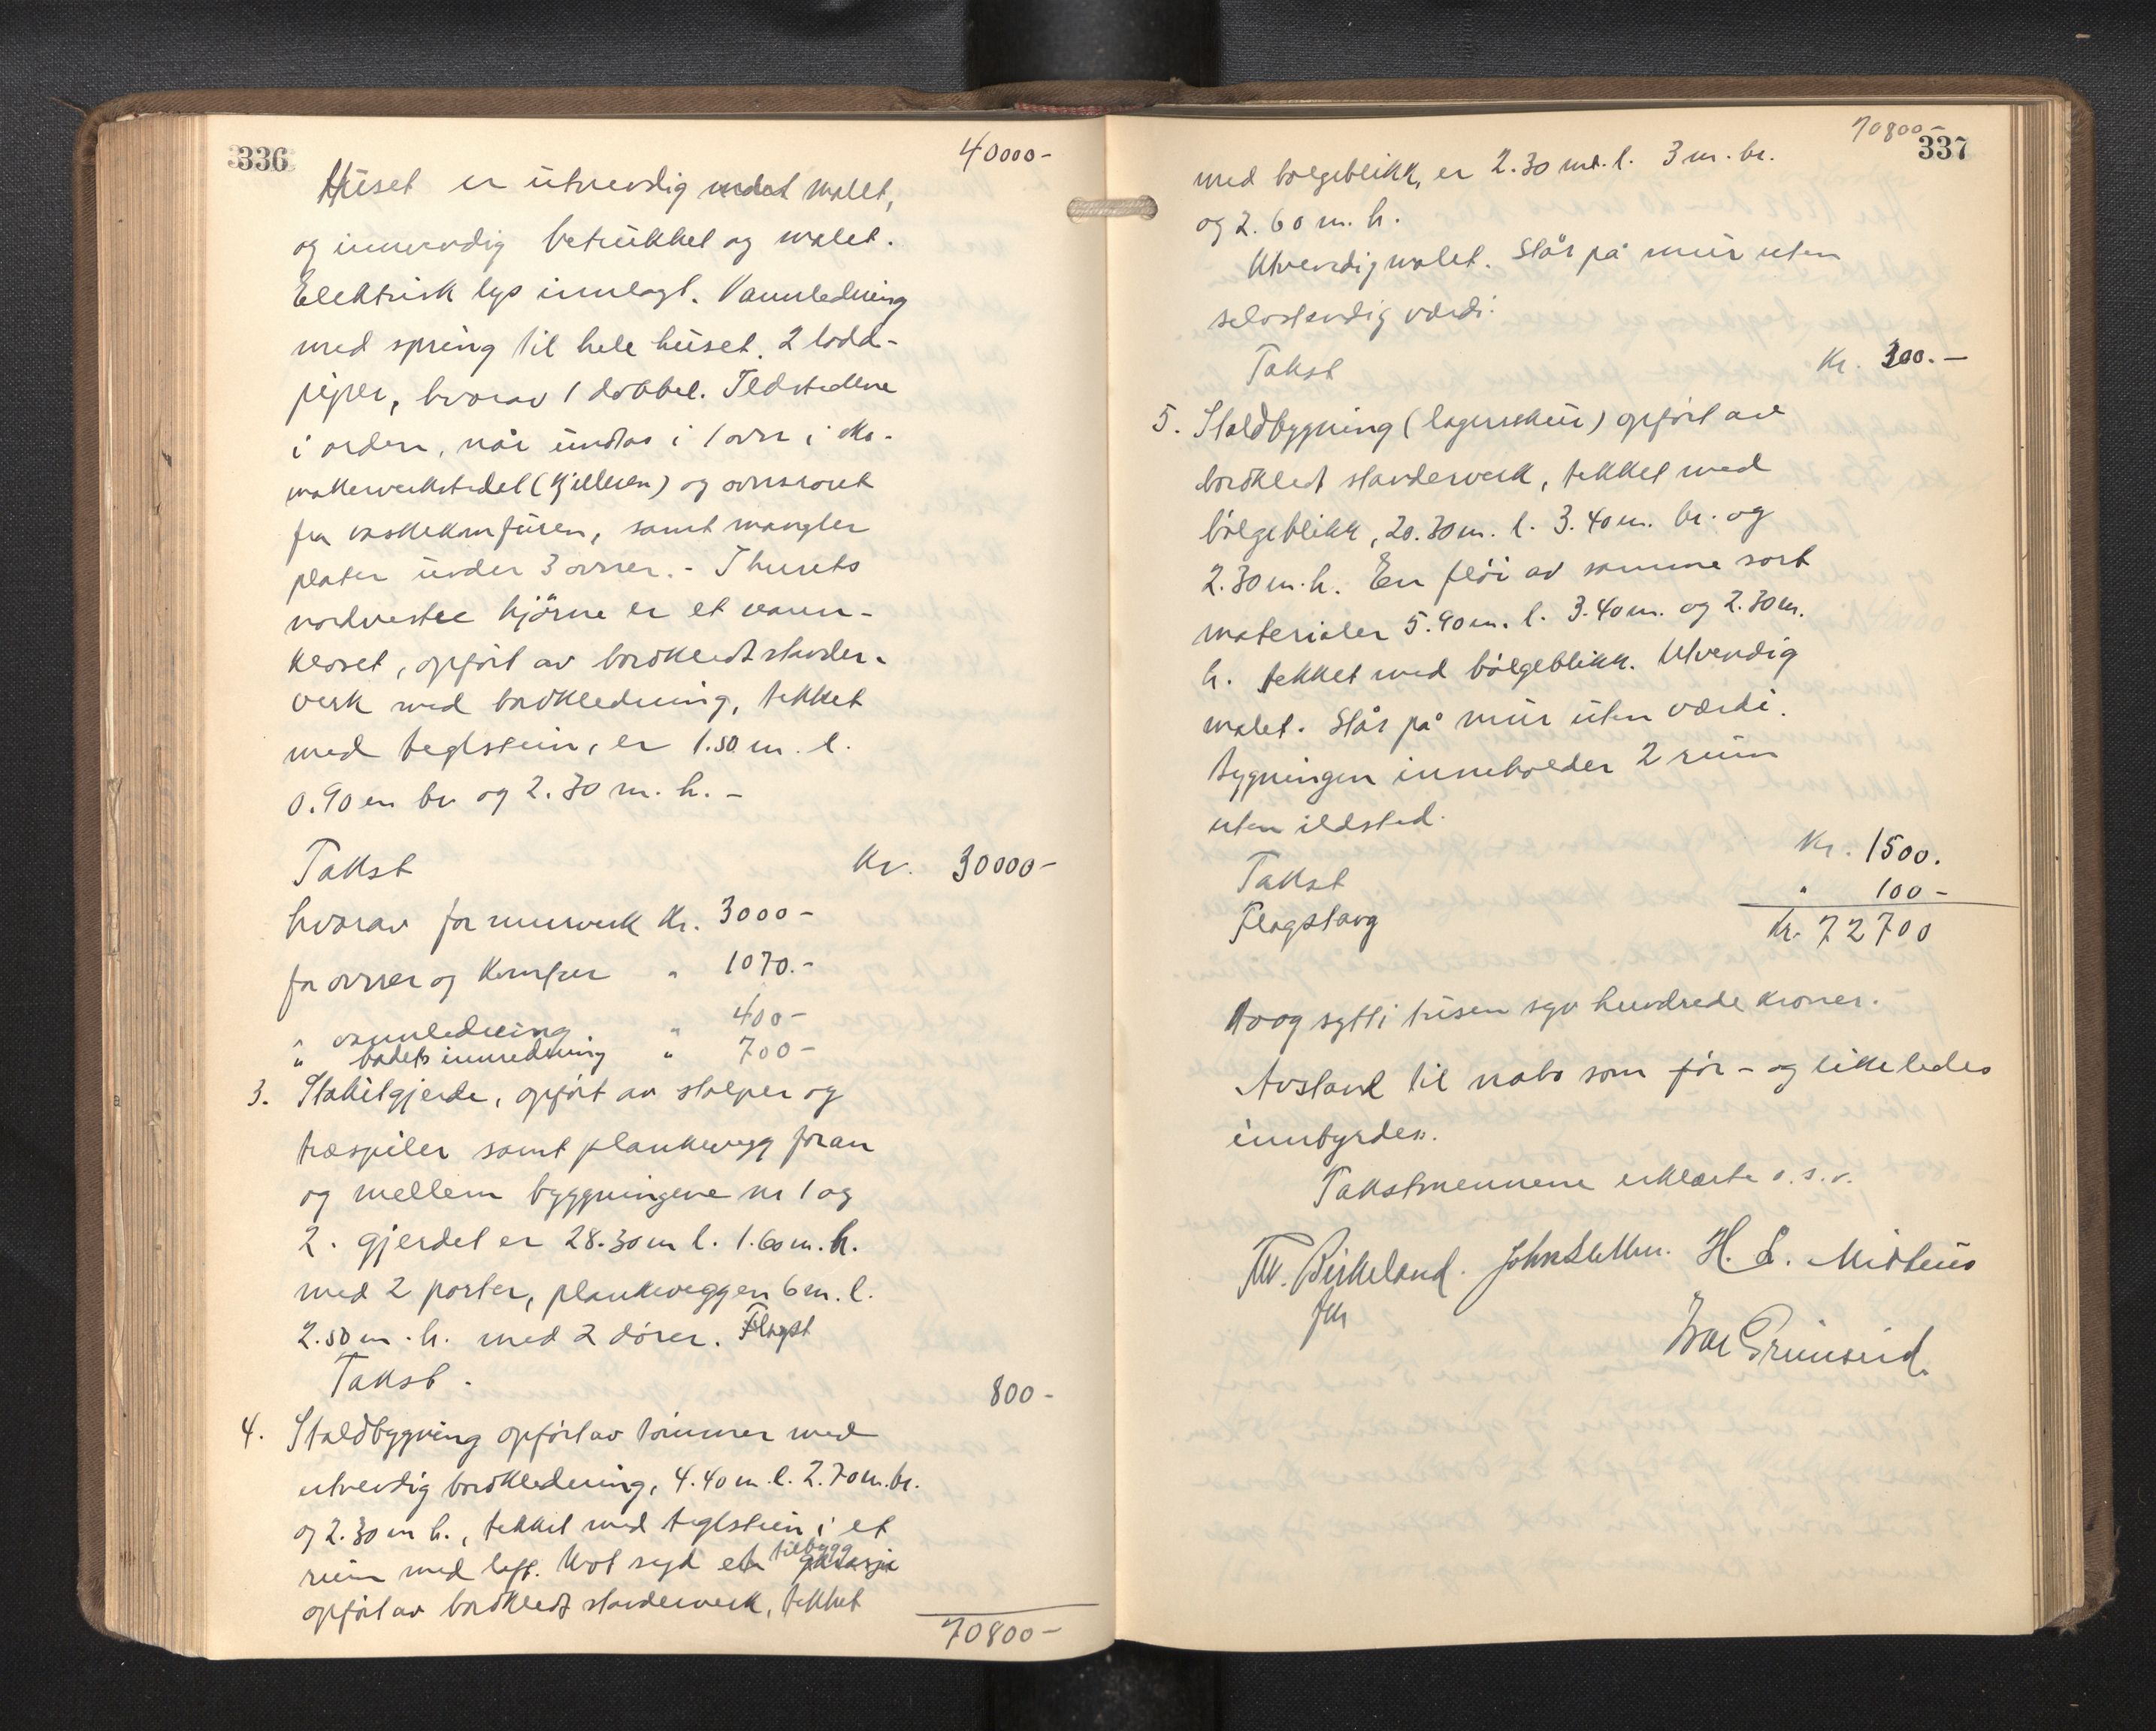 336
40000-
Huset er utvendig malet,
og innvendig betrukket og malet.
Elektrisk lys innlagt. Vannledning
med spring til hele huset. 2 lodd-
piper, hvorav 1 dobbel. Ildstedene
i orden, når undtas i 1 ovn i sko-
makerverkstedet (kjelleren) og ovnsrøret
fra vaskekomfuren, samt mangler
plater under 3 ovner. - I husets
nordvestre hjørne er et vann-
kloset, opført av bordkledt stender-
verk med bordkledning, tekket
med teglstein, er 1.50 m. l.
0.90 m br og 2.30 m. h. -
Takst Kr. 30000-
hvorav for murverk Kr. 3000-
for ovner og Komfur " 1070.-
" vannledning " 400-
" badets innredning " 700-
3. Stakitgjerde, opført av stolper og
træspiler samt plankevegg foran
og mellem byggningene nr 1 og
2. gjerdet er 28.30 m l. 1.60 m. h.
med 2 porter, plankeveggen 6 m. l.
2.50 m. h. med 2 dører. Flagst
Takst. 800-
4. Staldbygning opført av tømmer med
utvendig bordkledning, 4.40 m. l. 2.70 m. br.
og 2.30 m h., tekket med teglstein i et
rum med loft. Mot syd et tilbygg garasje
opført av bordkledt stenderverk, tekket
70800-
70800-
337
med bølgeblikk, er 2.30 m. l. 3 m. br.
og 2.60 m. h.
Utvendig malet. Står på mur uten
selvstendig værdi.
Takst Kr. 300.-
5. Staldbygning (lagerskur) opført av
bordkledt stenderverk, tekket med
bølgeblikk, 20.30 m. l. 3.40 m. br. og
2.30 m. h. En fløi av samme sort
materialer 5.90 m. l. 3.40 m. og 2.30 m.
h. tekket med bølgeblikk. Utvendig
malet. Står på mur uten værdi.
bygningen inneholder 2 rum
uten ildsted.
Takst Kr. 1500.
Flagstang " 100-
Kr. 72700
to og sytti tusen syv hundrede kroner.
Avstand til nabo som før - og likeledes
innbyrdes.
Takstmennene erklærte o. s. v.
Birkeland. John Sletten. H. L. Midthus
Ivar Grimseid.